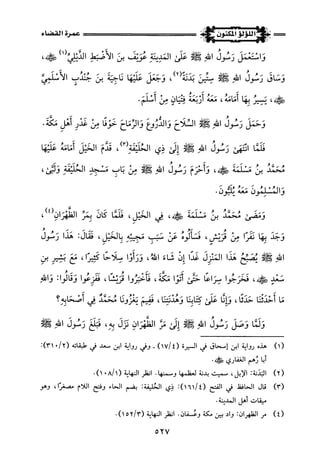 اللؤلؤ المكنون
عمرة القضاء
وَاسْتَعْمَلَ رَسُولُ اللهِ ﷺ عَلَى المَدِينَةِ عُوَيْفَ بنَ الأَضْبَطِ الدِّيْلِيَّ(١) ﷺ،
وَسَاقَ رَسُولُ اللهِ ﷺ سِتِّينَ بَدَنَةً(٢)، وَجَعَلَ عَلَيْهَا نَاجِيَةَ بنَ جُنْدُبٍ الأَسْلَمِيَّ
، يَسِيرُ بِهَا أَمَامَهُ، مَعَهُ أَرْبَعَةُ فِتْيَانٍ مِنْ أَسْلَمَ.
وَحَمَلَ رَسُولُ اللهِ ﷺ السِّلَاحَ وَالدُّرُوعَ وَالرِّمَاحَ خَوْفًا مِنْ غَدْرِ أَهْلِ مَكَّةَ.
فَلَمَّا انْتَهَى رَسُولُ اللهِ ﷺ إِلَى ذِي الحُلَيْفَةِ(٣)، قَدَّمَ الخَيْلَ أَمَامَهُ عَلَيْهَا
مُحَمَّدُ بنُ مَسْلَمَةَ ، وَأَحْرَمَ رَسُولُ اللهِ ﷺ مِنْ بَابِ مَسْجِدِ الحُلَيْفَةِ وَلَبَّى،
وَالمُسْلِمُونَ مَعَهُ يُلَبُّونَ.
وَمَضَى مُحَمَّدُ بنُ مَسْلَمَةَ ، فِي الخَيْلِ، فَلَمَّا كَانَ بِمَرِّ الظَّهْرَانِ(٤)،
وَجَدَ بِهَا نَفَرًا مِنْ قُرَيْشٍ، فَسَأَلُوهُ عَنْ سَبَبِ مَجِيئِهِ بِالخَيْلِ، فَقَالَ: هَذَا رَسُولُ
اللهِ ﷺ يُصَبِّحُ هَذَا المَنْزِلَ غَدًا إِنْ شَاءَ اللهُ، وَرَأَوْا سِلَاحًا كَثِيرًا، مَعَ بَشِيرِ بنِ
سَعْدٍ ، فَخَرَجُوا سِرَاعًا حَتَّى أَتَوْا مَكَّةَ، فَأَخْبَرُوا قُرَيْشًا، فَفَزِعُوا وَقَالُوا: وَاللهِ
مَا أَحْدَثْنَا حَدَثًا، وَإِنَّا عَلَى كِتَابِنَا وَهُدْنَتِنَا، فَفِيمَ يَغْزُونَا مُحَمَّدٌ فِي أَصْحَابِهِ؟
وَلَمَّا وَصَلَ رَسُولُ اللهِ ﷺ إِلَى مَرِّ الظَّهْرَانِ نَزَلَ بِهِ، فَبَلَغَ رَسُولَ اللهِ ﷺ
(١) هذه رواية ابن إسحاق في السيرة (١٧/٤) ـ وفي رواية ابن سعد في طبقاته (٣١٠/٢):
أبا رُهم الغفاري .
(٢) البَدَنَة: الإبل، سميت بدنة لعظمها وسمنها. انظر النهاية (١٠٨/١).
(٣) قال الحافظ في الفتح (١٦١/٤): ذي الحليفة: بضم الحاء وفتح اللام مصغرًا، وهو
ميقات أهل المدينة.
(٤) مر الظهران: واد بين مكة وعُسفان. انظر النهاية (١٥٢/٣).
٥٢٧